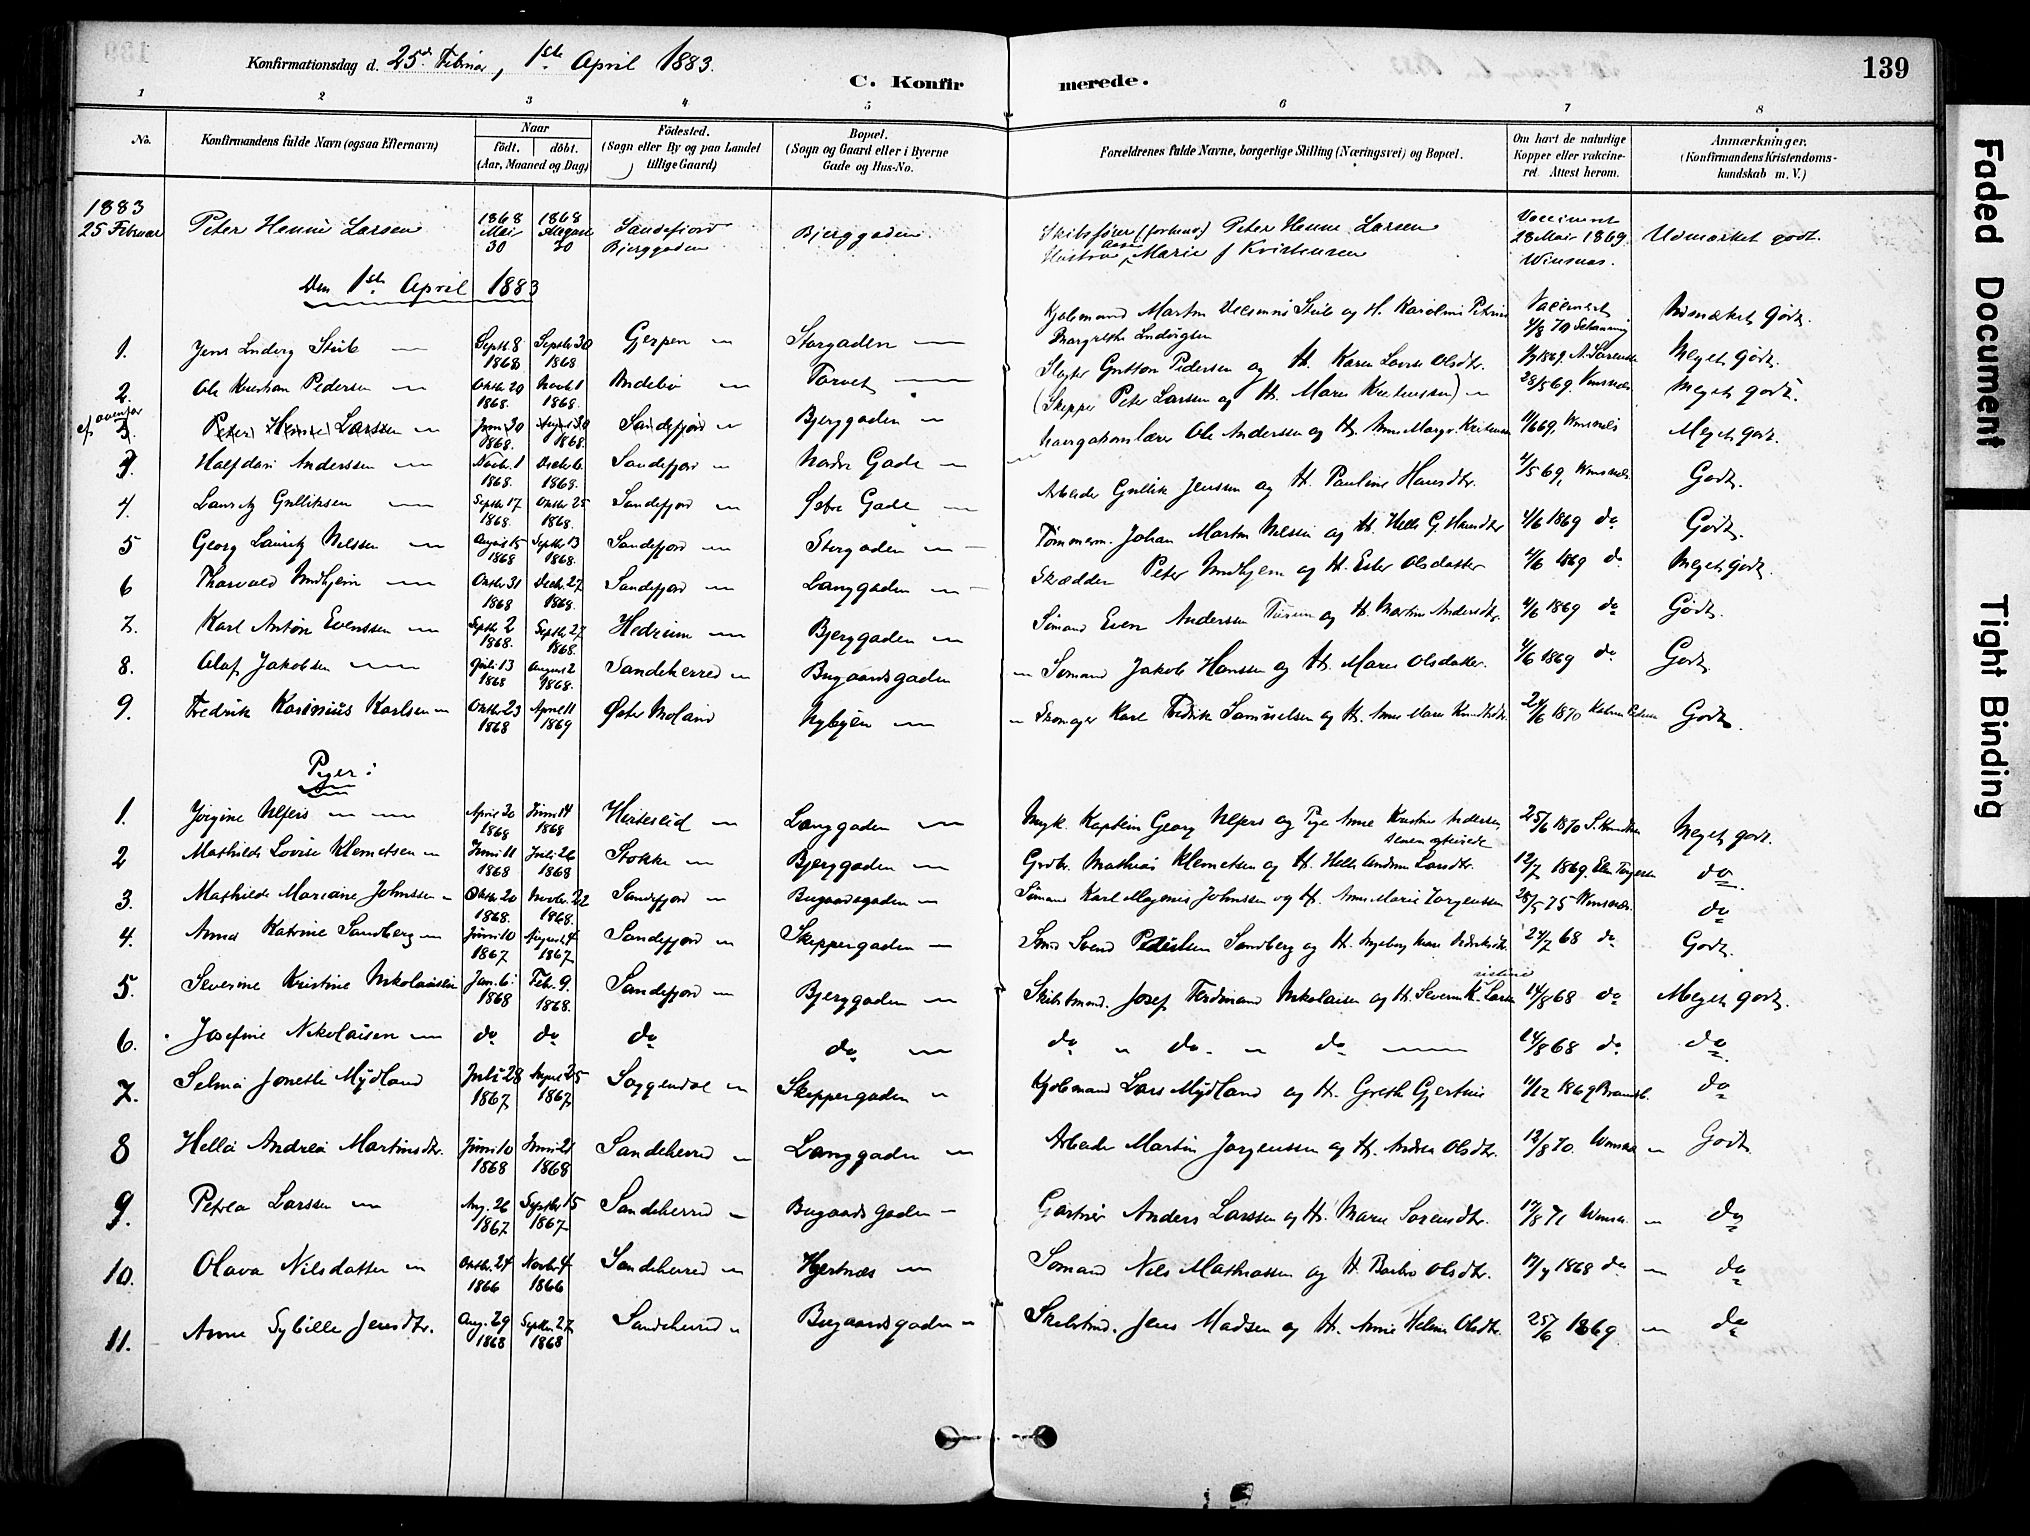 139
Konfirmationsdag d. 25de Februar, 1ste April 1883.
C. Konfirmerede.
1 2 3 4 5 6 7 8
No. Konfirmandens fulde Navn (ogsaa Efternavn) Naar Födt. döbt. (Aar, Maaned og Dag) Födested. (Sogn eller By og paa Landet tillige Gaard) Bopæl. (Sogn og Gaard eller i Byerne Gade og Hus-No. Forældrenes fulde Navne, borgerlige Stilling (Næringsvei) og Bopæl. Om havt de naturlige Kopper eller vakcineret. Attest herom. Anmærkninger. (Konfirmandens Kristendomskundskab m. V.)
1883
25 Februar Peter Larsen 1868 Mai 30 1868 August 30 Sandefjord Bjerggaden Bjerggaden. Peter Larsen Hustru Marie f Vaccineret 28 Mai 1869. Winsnæs. Udmærket godt.
Den 1ste April 1883
1. Jens Ludvig Stub Septbr 8 1868 Septbr 30 1868 Gjerpen Storgaden Kjøbmand Stub og H. Karoline Petrine Margrethe Vaccineret 70 Udmærket godt.
2. Ole Kristian Pedersen Oktbr 20 1868. Novbr 1 1868. Andebu Torvet Pedersen og H. Karen Lovise Olsdtr. 1869. Meget godt.
cf ovenfor 3. Peter Larssen Juni 30 1868. August 30 1868. Sandefjord Bjerggaden (Skipper Peter Larssen og H. Maren Kristenssen) 28/5 69. Winsnæs Meget godt.
3. Halfdan Anderssen Novbr. 1 1868. Decbr 6. 1868. Sandefjord Nordre Gade Navigationslærer Ole Anderssen og H. Anne Margr. 69, Winsnæs Meget godt.
4. Lauritz Gulliksen Septbr 17 1868. Oktbr 25 1868. Sandefjord Østre Gade Arbeider Gullik Jenssen og H. Pauline Hansdtr. 4/5 69, Winsnæs. Godt.
5 Georg Lauritz Nilssen August 15 1868 Septbr 13 1868. Sandefjord Storgaden Tømmerm. Johan Martin Nilssen og H. Helle G. 4/6 1869 do Godt.
6 Thorvald Undhjem Oktbr 31 1868 Decbr. 27 1868. Sandefjord Langgaden Skrædder Peter Undhjem og H. Ester Olsdatter 4/6 1869 do Meget godt.
7. Karl Anton Evenssen Septbr 2 1868. Septbr 27 1868. Hedrum Bjerggaden Sömand Even Anderssen og H. Martine Andersdtr. 4/6 1869 do Godt.
8. Olaf Jakobsen Juli 13 1868 August 2 1868. Sandeherred Bugaardsgaden Sömand Jakob Hanssen og H. Maren Olsdatter. 4/6 1869 do Godt.
9. Fredrik Karinius Karlsen Oktbr 23 1868 April 11 1869 Øster Moland Nybyen Skomager Karl Fredrik Samuelsen og H. Anne Maria Knudsdtr. 24/6 1870 Godt.
Piger:
1. Jörgine Ulfers April 20 1868 Juni 14 1868 Hiterdal Langgaden Kaptein Georg Ulfers og Pige Anne Kristine Andersen 25/6 1870 Meget godt.
2 Mathilde Lovise Klemetsen Juni 11 1868 Juli 26 1868 Stokke Bjerggaden Grdbr. Mathias Klemetsen og H. Helle 12/7 1869. do
3. Mathilde Mariane Johnssen Oktbr 20 1868. Novbr. 22 1868. Sandefjord Bugaardsgaden Sömand Karl Magnus Johnssen og H. Anne Marie Jörgenssen 28/5 75 Winsnæs. do
4. Anna Katrine Sandberg Juni 10 1867 August 4 1867 Sandefjord Skippergaden Smed Svend Sandberg og H. Ingeborg 24/7 68 do Godt.
5. Severine Kristine Nikolaisen Jan. 6 1868 Feb. 9. 1868. Sandefjord Bjerggaden Josef Ferdinand Nikolaisen og H. Severine Kristine Larsen 14/8 68 do Meget godt.
6. Josefine Nikolaisen do do do do do " do " do 14/8 68 do do
7. Selma Jonette Mydland Juli 28 1867 August 25 1867 Soggendal Skippergaden Kjöbmand Lars Mydland og H. Grethe 1869 do
8 Hella Andrea Martinsdtr. Juni 10 1868 Juni 21 1868 Sandeherred Langgaden Arbeider Martin Jörgenssen og H. Andrea Olsdtr. 12/8 70. Winsnæs Godt
9. Petrea Larssen Aug. 26 1867 Septbr 15 1867 Sandeherred Bugaardsgaden Gartner Anders Larssen og H. Maren Sörensdtr. 17/8 71 Winsn. do
10. Olava Nilsdatter Oktbr. 24 1866 Novbr. 4 1866 Sandeherred Hjertnæs Sömand Nils Mathiassen og H. Barbro Olsdtr. 1868 do do
11. Anne Sybille Jensdtr. Aug. 29 1868 Septbr. 27 1868 Sandeherred Bugaardsgaden Jens Madsen og H. Anne Helene Olsdtr. 25/6 1869 do
Faded Document
Tight Binding